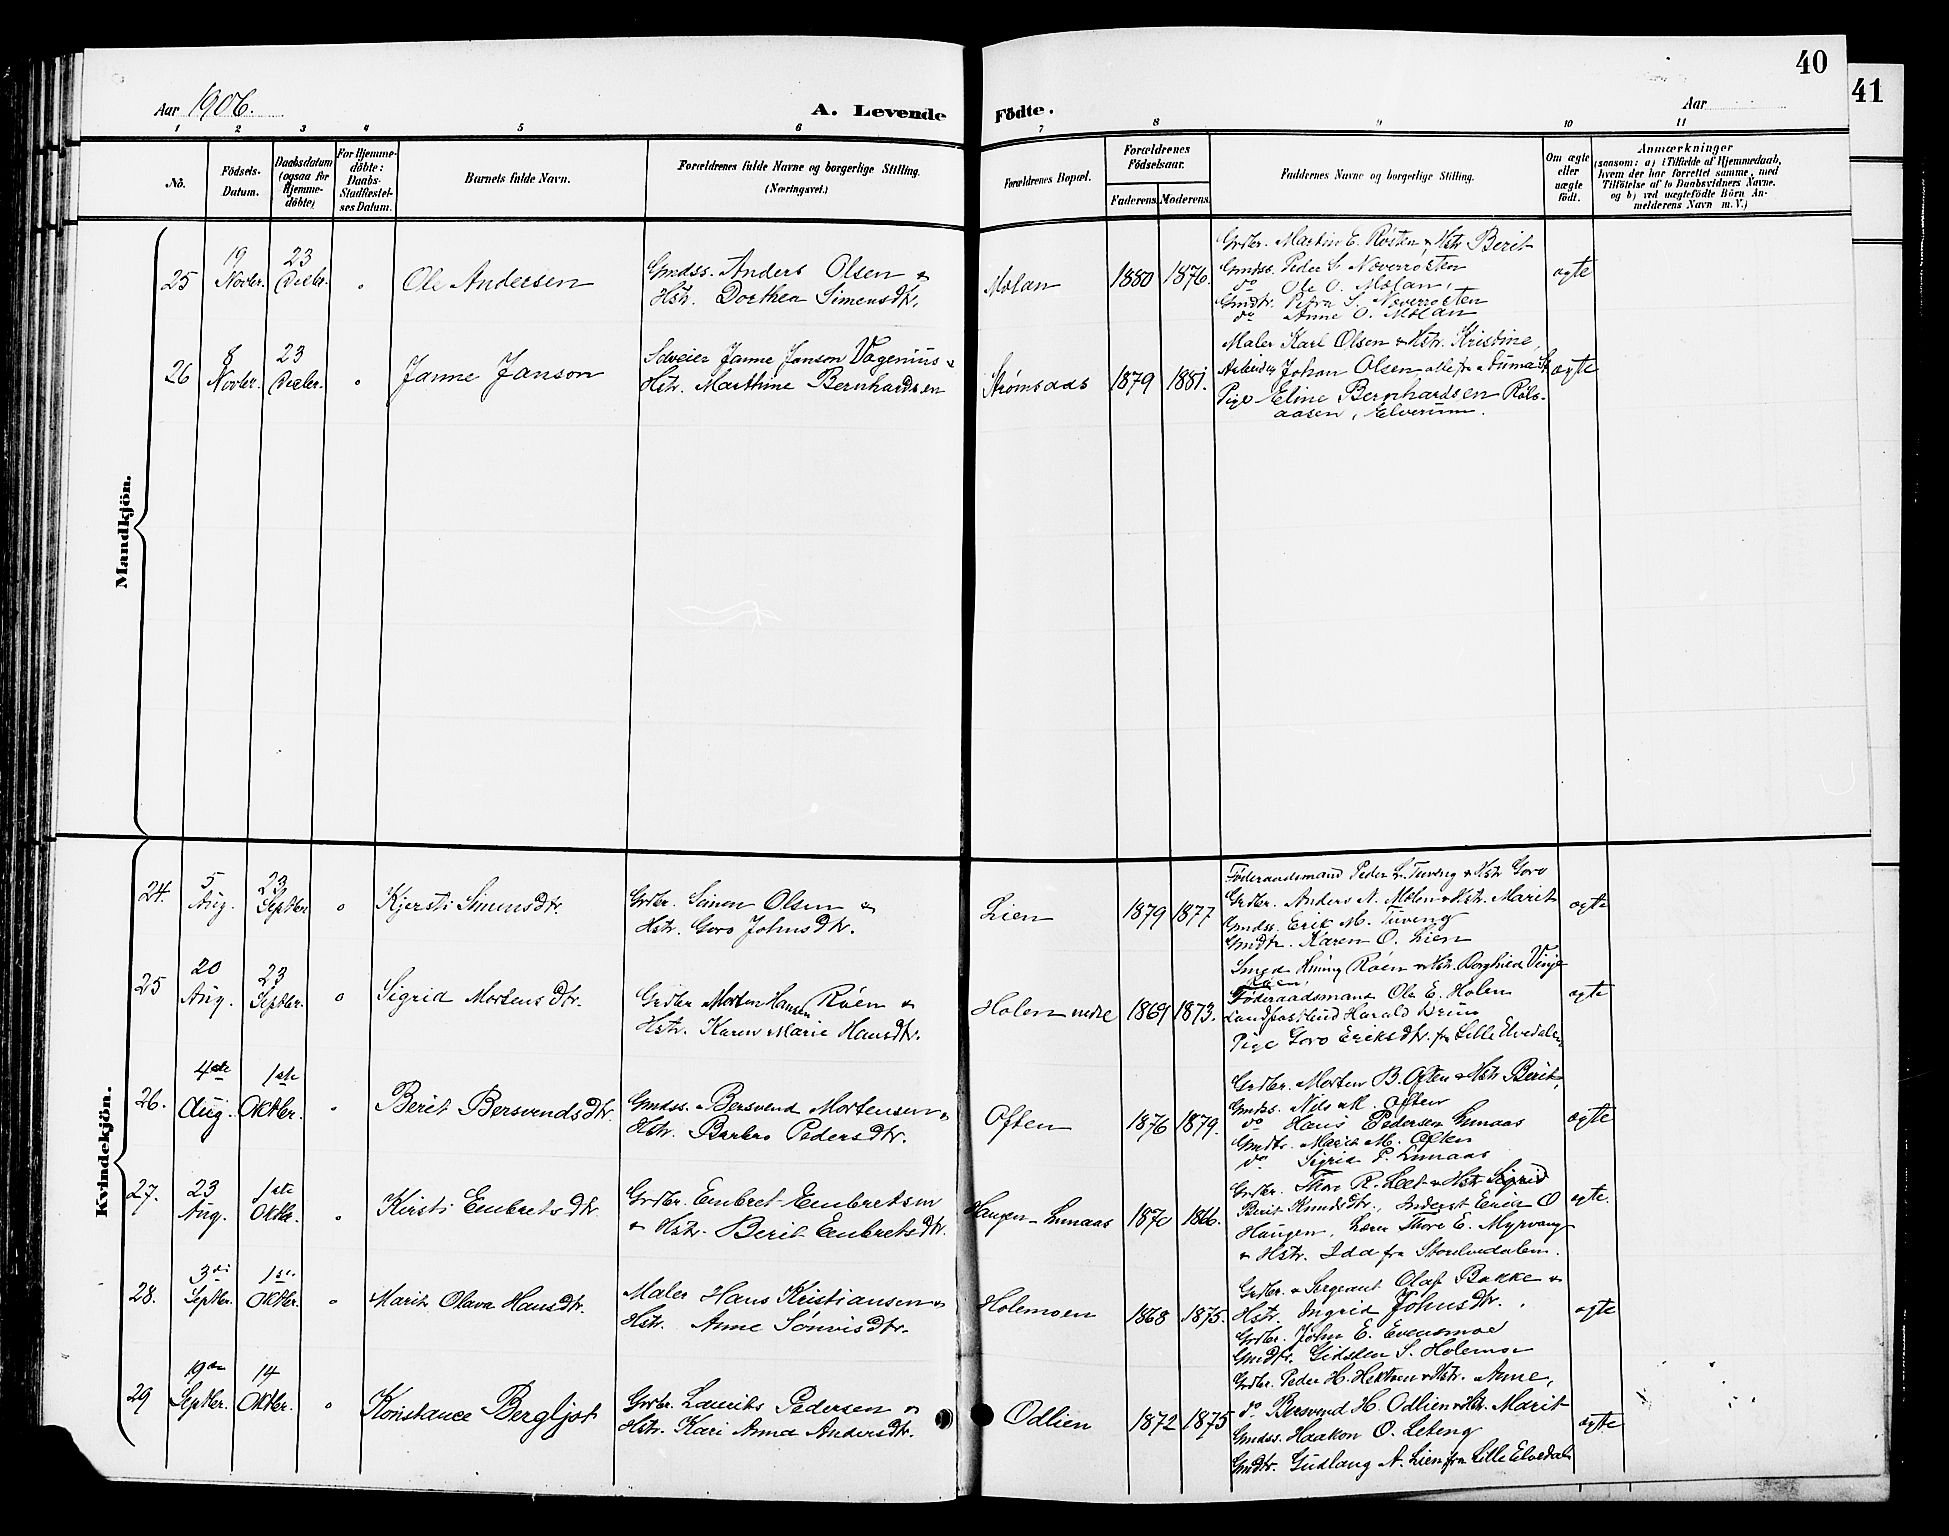 40
41
Aar 1906.
A. Levende Födte.
Aar
1 2 3 4 5 6 7 8 9 10 11
No.
Födsels-
Datum.
Daabsdatum
(ogsaa for
Hjemme-
döbte)
For Hjemme-
döbte:
Daabs-
Stadfæstel-
ses Datum.
Barnets fulde Navn.
Forældrenes fulde Navne og borgerlige Stilling.
(Næringsvei.)
Forældrenes Bopæl.
Forældrenes
Födselsaar.
Faderens. Moderens.
Faddernes Navne og borgerlige Stilling.
Om ægte
eller
uægte
födt.
Anmærkninger
(saasom: a) i Tilfælde af Hjemmedaab,
hvem der har forrettet samme, med
Tilföielse af to Daabsvidners Navne.
og b) ved uægtefödte Börn An-
melderens Navn m. V.)
Mandkjön.
25
19
Novbr.
23
Decbr.
"
Ole Andersen
Gmdss. Anders Olsen &
Hstr. Dorthea Simensdtr.
Molan
1880
1876.
Grdbr. Martin E. Røsten & Hstr Berit
Gmdss. Peder S. Noverrøsten
do Ole O. Mølan,
Gmdtr. Petra S. Noverrøsten
do Anne O. Mølan
ægte
26
8
Novbr.
23
Decbr.
"
Janne Janson
Janne Janson Vagenius &
Hstr. Marthine Bernhardsen
Strømsaas
1879
1881.
Maler Karl Olsen & Hstr. Kristine,
Arbeider Johan Olsen, alle fra
Pige Eline Bernhardsen
aasen, Elverum.
ægte
Kvindekjön.
24.
5
Aug.
23
Septbr
"
Kjersti Simensdtr.
Grdbr. Simon Olsen &
Hstr. Goro Johnsdtr.
Lien
1879
1877
Föderaadsmand Peder Tuveng & Hstr Goro
Grdbr. Anders A. Mölen & Hstr. Marit
Gmdss. Erik M. Tuveng
Gmdtr. Karen O. Lien
ægte
25
20
Aug.
23
Septbr.
"
Sigrid Mortensdtr.
Grdbr Morten Hansen Røen &
Hstr. Karen Marie Hansdtr.
Holen nedre
1869
1873.
Smed Røen & Hstr. Borghild Vinje
Røen,
Föderaadsmand Ole E. Holen
Landpostbud Harald
Pige Goro Eriksdtr. fra Lille Elvedalen
ægte
26.
4de
Aug.
1ste
Oktbr.
"
Berit Bersvendsdtr.
Gmdss. Bersvend Mortensen &
Hstr. Barbro Pedersdtr.
Often
1876
1879.
Grdbr. Morten B. Often & Hstr Berit,
Gmdss. Nils M. Often
do Hans Pedersen Lunaas
Gmdtr. Marit M. Often
do Sigrid P. Lunaas
ægte
27.
23
Aug.
1ste
Oktbr.
"
Kirsti Embretsdtr.
Grdbr. Embret Embretsen
& Hstr. Berit Embretsdtr.
Haugen - Lunaas
1870
1866.
Grdbr. Thore R. & Hstr Sigrid
Berit Knudsdtr., Inderst Erik O
Haugen, Lærer Thore E. Myrvang
& Hstr. Ida fra Storelvedalen.
ægte.
28.
3di
Septbr.
1ste
Oktbr.
"
Marit Olava Hansdtr.
Maler Hans Kristiansen &
Hstr. Anne
Holemoen
1868
1875.
Grdbr. & Sergeant Olaf Bakke &
Hstr. Ingrid Johnsdtr.
Grdbr. John E. Evensmoe
Gmdtr. S. Holemo
ægte
29
19de
Septbr.
14
Oktbr.
"
Konstance Bergljot
Grdbr. Laurits Pedersen &
Hstr. Kari Anna Andersdtr.
Odlien
1872
1875
Grdbr. Peder H. Hektoen & Hstr. Anne,
do Bersvend H. Odlien & Hstr. Marit
Gmdss. Haakon O. Leteng
Gmdtr. Gudlaug A. Lien, fra Lille Elvedal
ægte